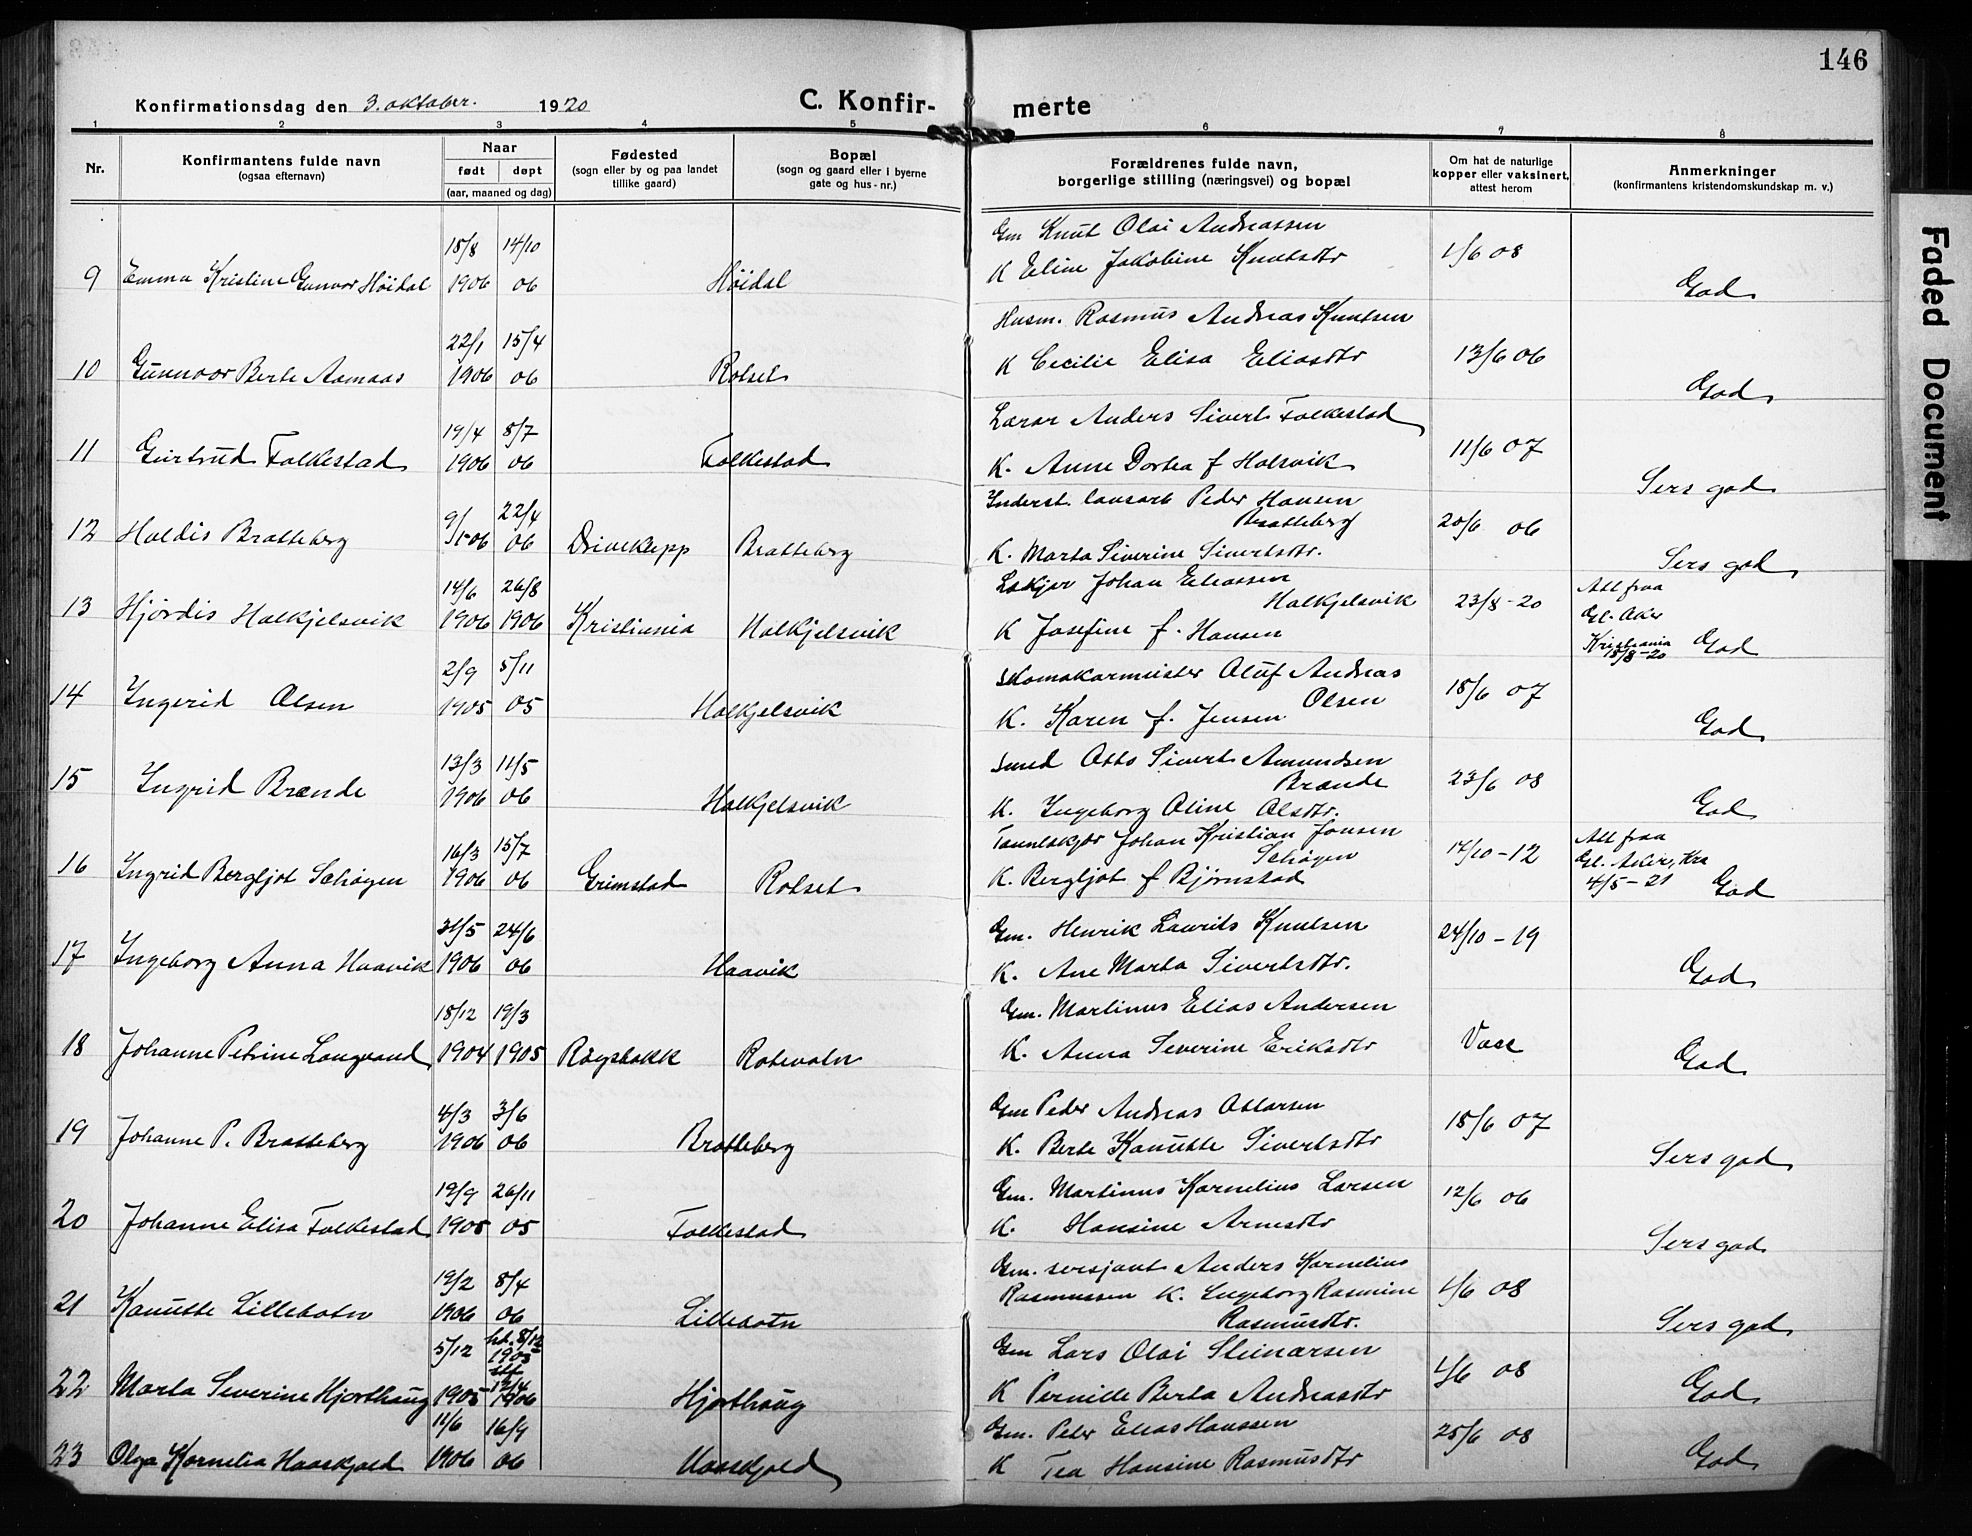 146
Konfirmationsdag den 3. oktober. 1920
C. Konfir-merte
1 2 3 4 5 6 7 8
Nr.
Konfirmantens fulde navn
(ogsaa efternavn)
Naar
født døpt
(aar, maaned og dag)
Fødested
(sogn eller by og paa landet
tillike gaard)
Bopæl
(sogn og gaard eller i byerne
gate og hus-nr.)
Forældrenes fulde navn,
borgerlige stilling (næringsvei) og bopæl
Om hat de naturlige
kopper eller vaksinert,
attest herom
Anmerkninger
(konfirmantens kristendomskundskap m. v.)
Faded Document
15/8 14/10 Gm Knut Olai Andreassen
9 Emma Kristine Gunvor Höidal 1906 06 Höidal K Eline Jakobine Knutsdtr 1/6 08 God
22/1 15/4 Husm. Rasmus Andreas Knutsen
10 Gunnvor Berte Aamaas 1906 06 Rotset K Cecilie Elisa Eliasdtr 13/6 06 God
19/4 8/7 Lærar Anders Sivert Folkestad
11 Gurtrud Folkestad 1906 06 Folkestad K. Anne Dortea f Halsvik 11/6 07 Sers god
9/1-06 22/4 06 Peder Hansen
Bratteberg
12 Haldis Bratteberg Drivekupp Bratteberg K. Marta Siverine Sivertsdtr. 20/6 06 Sers god
14/6 26/8 Johan Eliassen
Halkjelsvik
13 Hjördis Halkjelsvik 1906 1906 Kristiania Halkjelsvik K Josefine f. Hansen 23/8-20 Att fraa
Gl. Aker
Kristiania
18/8-20 God
2/9 5/11 Skomakarmeister Oluf Andreas
Olsen
14 Ingerid Olsen 1905 05 Halkjelsvik K. Karen f. Jensen 18/6 07 God
13/3 11/5 Smed Otto Sivert Amundsen
Brænde
15 Ingrid Brænde 1906 06 Halkjelsvik K. Ingeborg Oline Olsdtr. 23/6 08 God
16/3 15/7 Johan Kristian Jonsen
Schøyen
16 Ingrid Bergljot Schøyen 1906 06 Grimstad Rotset K. Bergljot f Bjørnstad 17/10-12 Att fraa
Gl. Aker, Kra
4/5-21 God
31/5 24/6 Gm. Henrik Laurits Knutsen
17 Ingeborg Anna Haavik 1906 06 Haavik K. Ane Marta Sivertsdtr. 24/10-19 God
18/12 19/3 Gm. Martinus Elias Andersen
18 Johanne Petrine Langvand 1904 1905 Røystokk Rotevatn K. Anna Severine Eriksdtr Vacc God
4/3 3/6 Gm Peder Andreas Ottarsen
19 Johanne P. Bratteberg 1906 06 Bratteberg K. Berte Kanutte Sivertsdtr 18/6 07 Sers god
19/9 26/11 Gm. Martinus Kornelius Larsen
20 Johanne Elisa Folkestad 1905 05 Folkestad K. Hansine Arnesdtr 12/6 06 Sers god
19/2 8/4 Gm. sersjant Anders Kornelius
21 Kanutte Lillebotn 1906 06 Lillebotn Rasmussen K. Ingeborg Rasmine
Rasmusdtr. 1/6 08 Sers god
5/12 hd. 8/12
1905 Gm Lars Olai Steinarsen
22 Marta Severine Hjorthaug 1905 1906 Hjorthaug K Pernille Berta Andreasdtr 1/6 08 God
11/6 16/9 Gm. Peder Elias Hanssen
23 Olga Kornelia Haaskjold 1906 06 Haaskjold K Tea Hansine Rasmusdtr 25/6 08 God